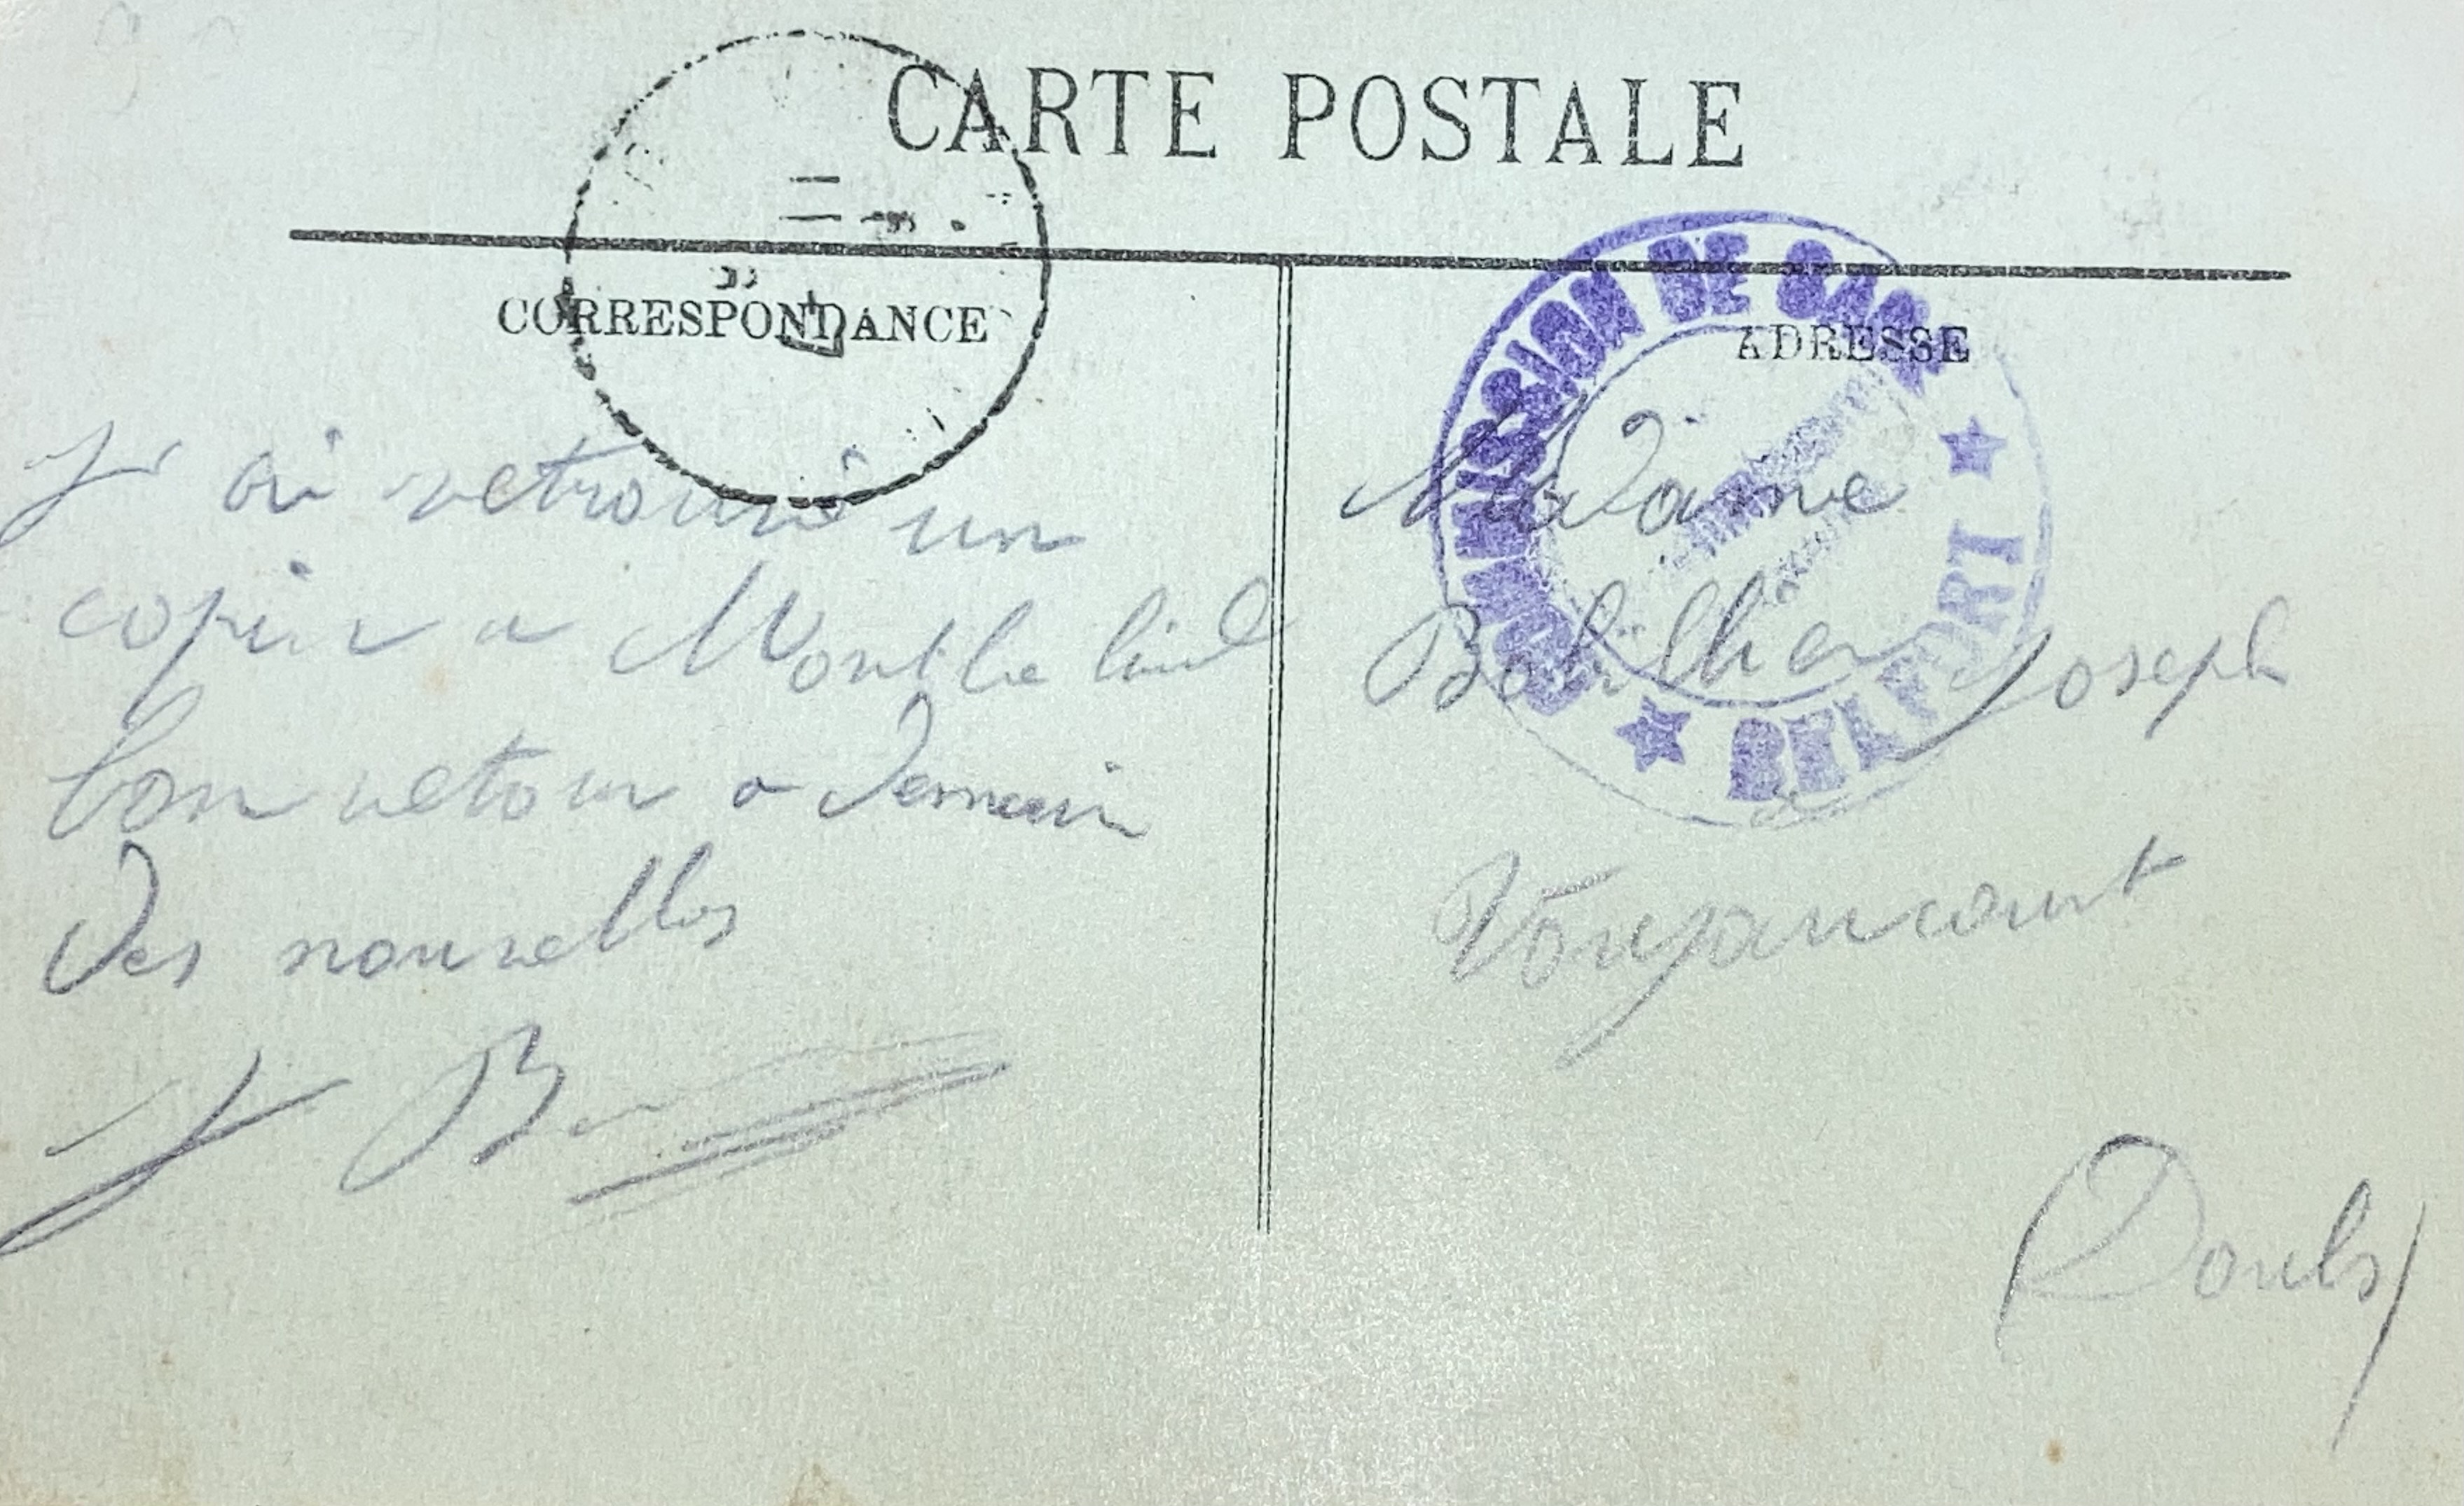 CARTE POSTALE
CORRESPONDANCE
ADRESSE
COMMISSION DE GARE
★ BELFORT ★
J'ai retrouvé un
copin a Montbeliard
bon retour a demain
des nouvelles
J B
Madame
Bobillier Joseph
a
Voujaucourt
Doubs